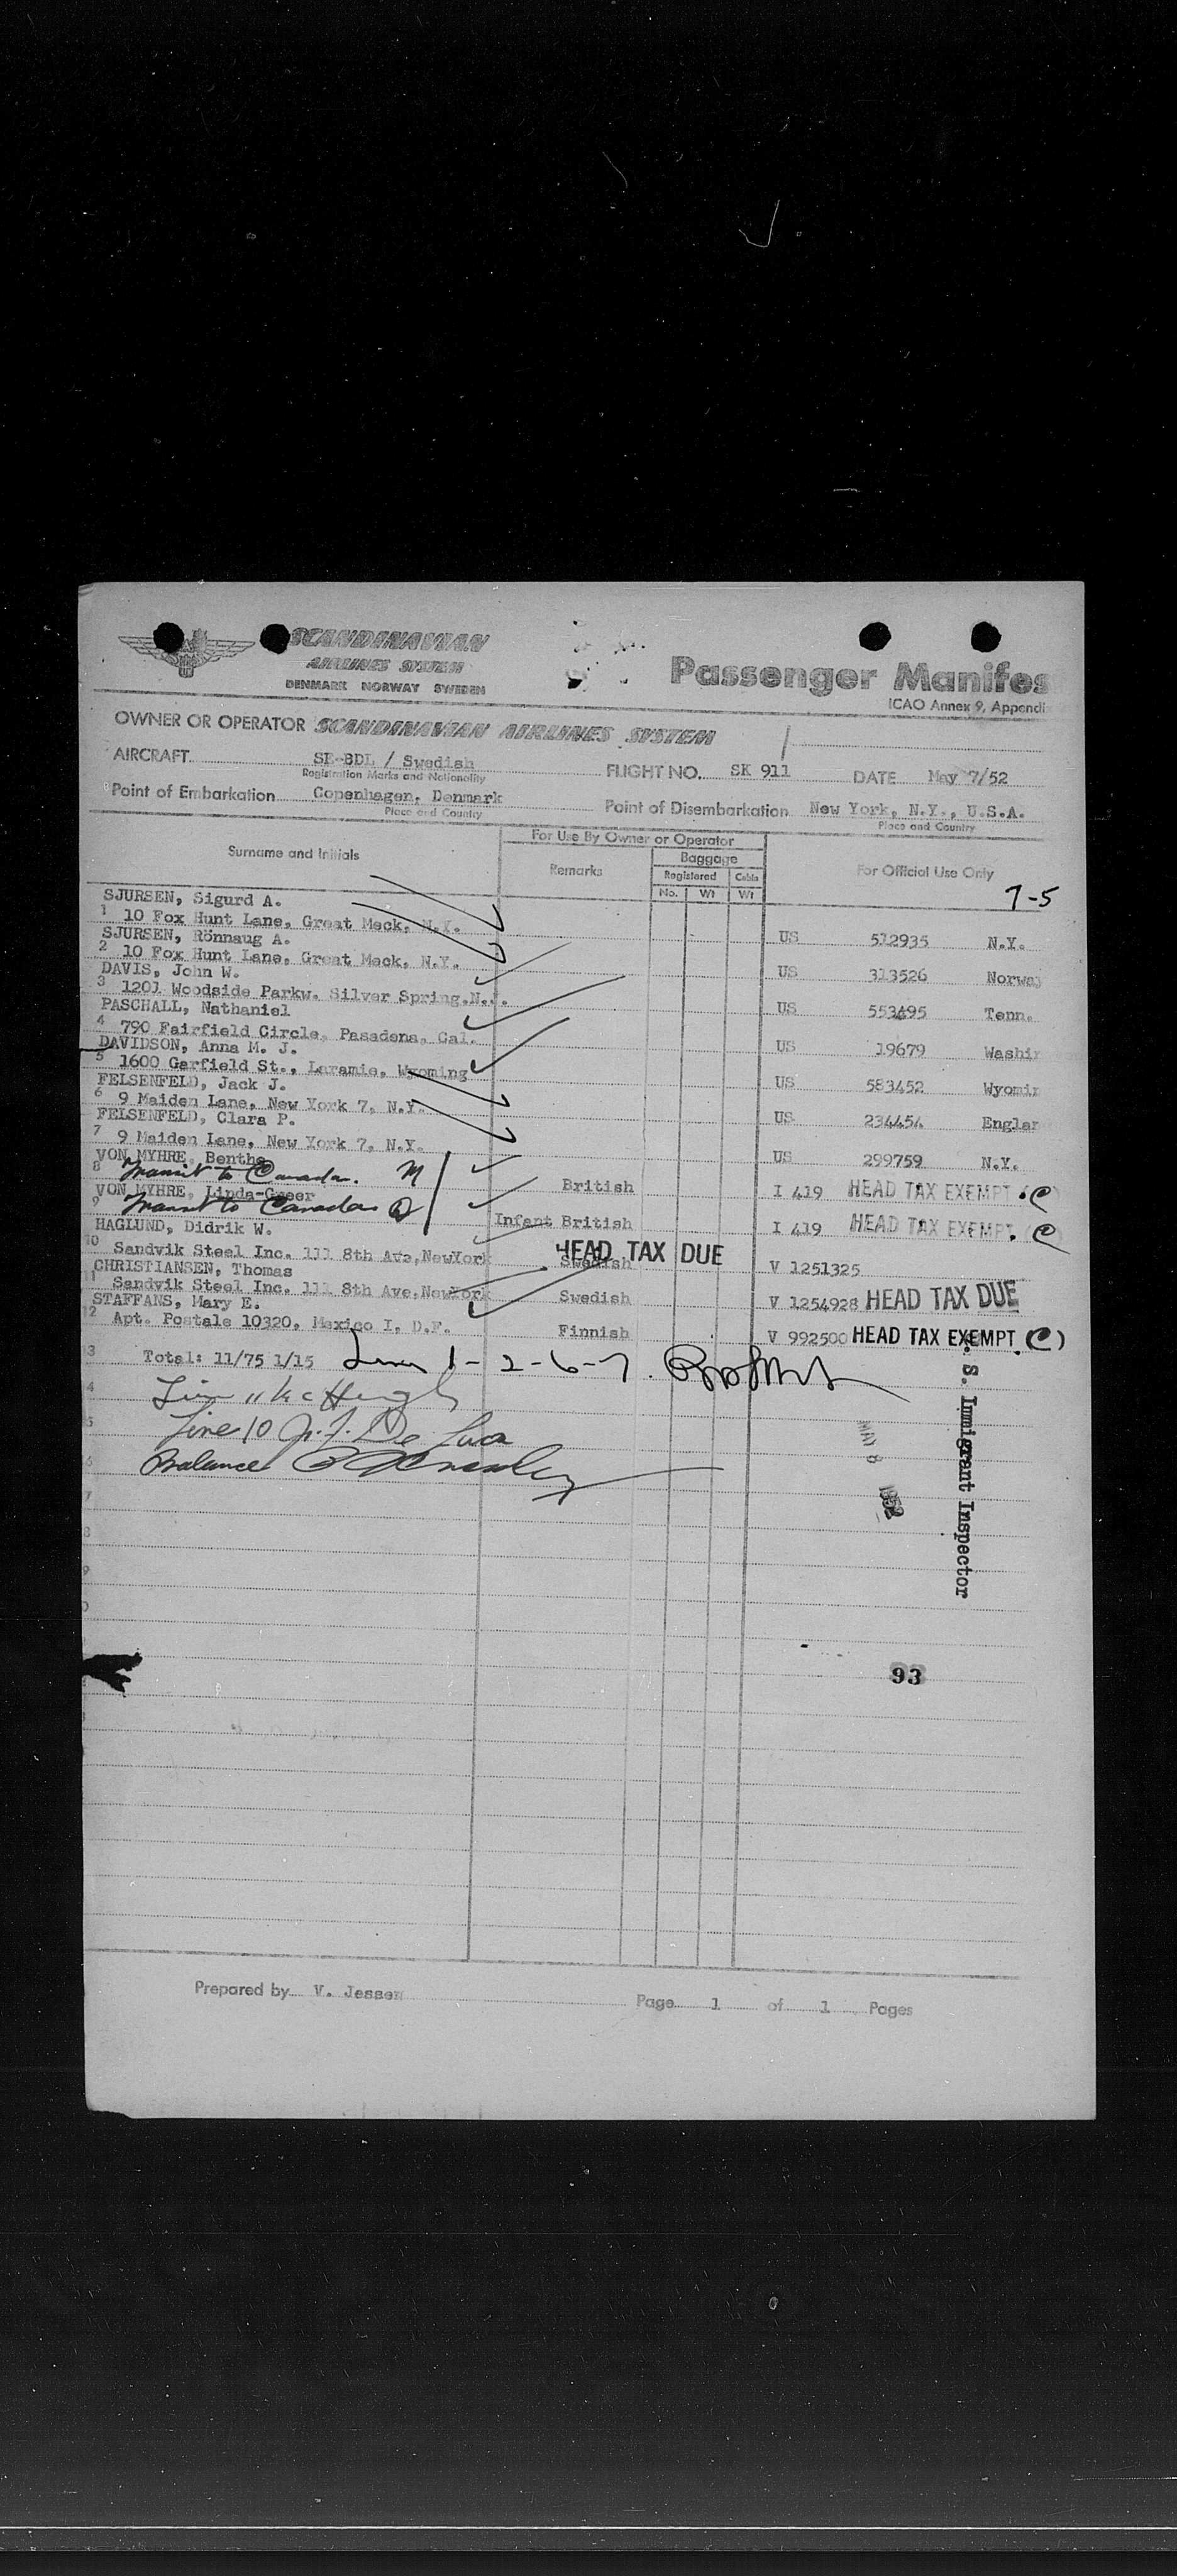 SCANDINAVIAN
AIRLINES SYSTEM
DENMARK NORWAY SWEDEN
Passenger Manifes
ICAO Annex 9, Appendi
OWNER OR OPERATOR SCANDINAVIAN AIRLINES SYSTEM
AIRCRAFT SE-BDL / Swedish FLIGHT NO. SK 911 DATE May 7/52
Registration Marks and Nationality
Point of Embarkation Copenhagen, Denmark Point of Disembarkation New York, N.Y., U.S.A.
Place and Country Place and Country
Surname and Initials For Use By Owner or Operator For Official Use Only
Remarks Baggage
Registered Cabin
No. Wt Wt
7-5
SJURSEN, Sigurd A.
1 10 Fox Hunt Lane, Great Meck, N.Y. US 512935 N.Y.
SJURSEN, Rönnaug A.
2 10 Fox Hunt Lane, Great Meck, N.Y. US 313526 Norway
DAVIS, John W.
3 1201 Woodside Parkw. Silver Spring.N.J. US 553495 Tenn.
PASCHALL, Nathaniel
4 790 Fairfield Circle, Pasadena, Cal. US 19679 Washin
DAVIDSON, Anna M. J.
5 1600 Garfield St., Laramie, Wyoming US 583452 Wyomin
FELSENFELD, Jack J.
6 9 Maiden Lane, New York 7, N.Y. US 234454 Englan
FELSENFELD, Clara P.
7 9 Maiden Lane, New York 7, N.Y. US 299759 N.Y.
VON MYHRE, Benthe
8 Transit to Canada. M British I 419 HEAD TAX EXEMPT. (C)
VON MYHRE, Linda-Greer
9 Transit to Canada Infant British I 419 HEAD TAX EXEMPT. (C)
HAGLUND, Didrik W.
10 Sandvik Steel Inc. 111 8th Ave,NewYork Swedish HEAD TAX DUE V 1251325
CHRISTIANSEN, Thomas
11 Sandvik Steel Inc. 111 8th Ave,NewYork Swedish V 1254928 HEAD TAX DUE
STAFFANS, Mary E.
12 Apt. Postale 10320, Mexico I, D.F. Finnish V 992500 HEAD TAX EXEMPT. (C)
13 Total: 11/75 1/15 Lines 1-2-6-7.
4 Line 11 McHugh
5 Line 10 J. J. De Luca
6 Balance
7
8
9
0
S. Immigrant Inspector
MAY 8 1952
93
Prepared by V. Jessen Page 1 of 1 Pages